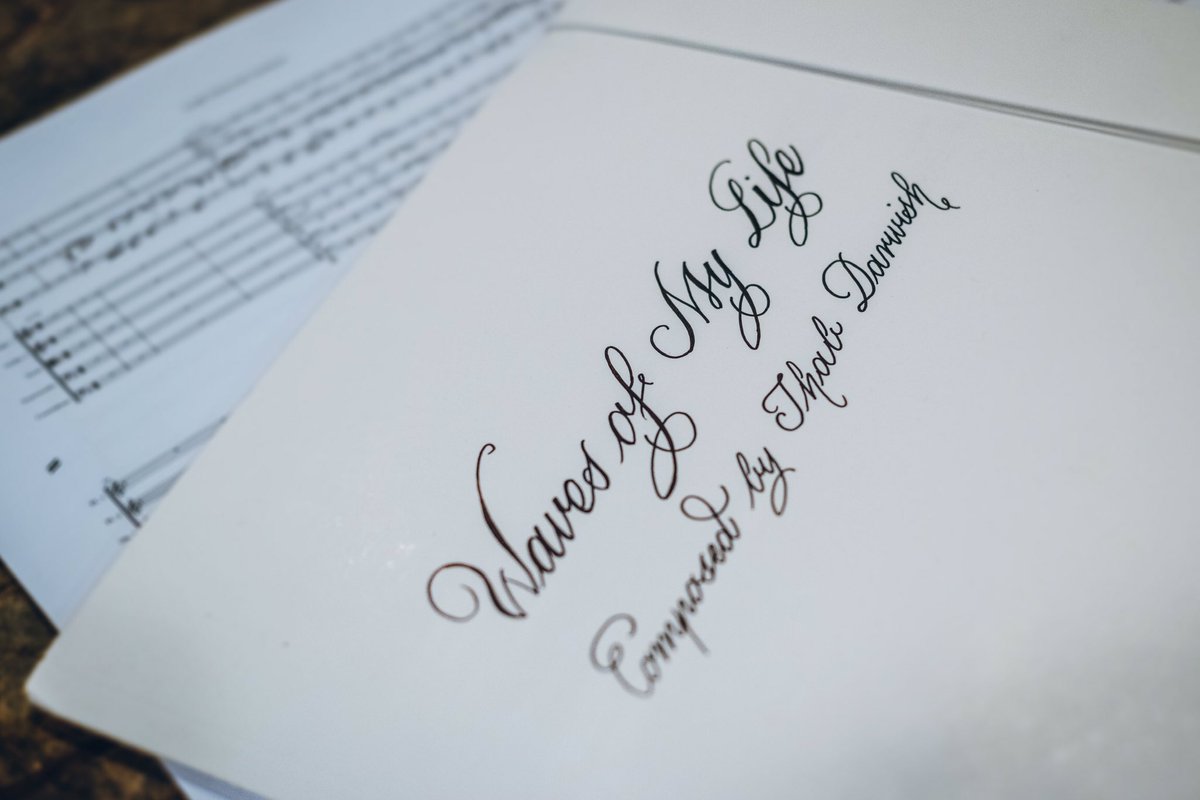 Waves of My Life
Composed by Thab Darwish